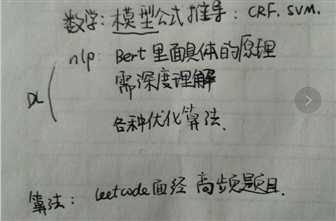 数学：模型公式推导：CRF. SVM.
nlp: Bert 里面具体的原理
DL
需深度理解
各种优化算法.
算法：leetcode面经 高频题目.